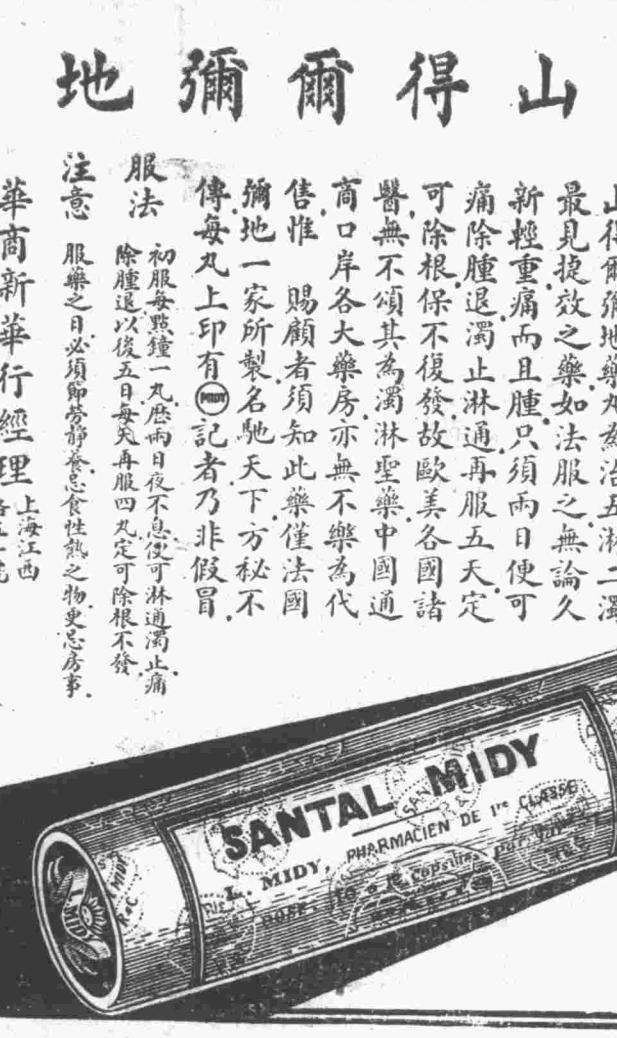 山得爾彌地
山得爾彌地藥丸為治五淋二濁
最見捷效之藥如法服之無論久
新輕重痛而且腫只須兩日便可
痛除腫退濁止淋通再服五天定
可除根保不復發故歐美各國諸
醫無不頌其為濁淋聖藥中國通
商口岸各大藥房亦無不樂為代
售惟 賜顧者須知此藥僅法國
彌地一家所製名馳天下方秘不
傳每丸上印有MIDY記者乃非假冒
服法
初服每點鐘一丸歷兩日夜不息便可淋通濁止痛
除腫退以後五日每天再服四丸定可除根不發
注意
服藥之日必須節勞靜養忌食性熱之物更忌房事
華商新華行經理
上海江西
SANTAL MIDY
L. MIDY, PHARMACIEN DE 1re CLASSE
DOSE, 10 a 12 capsules Par jour